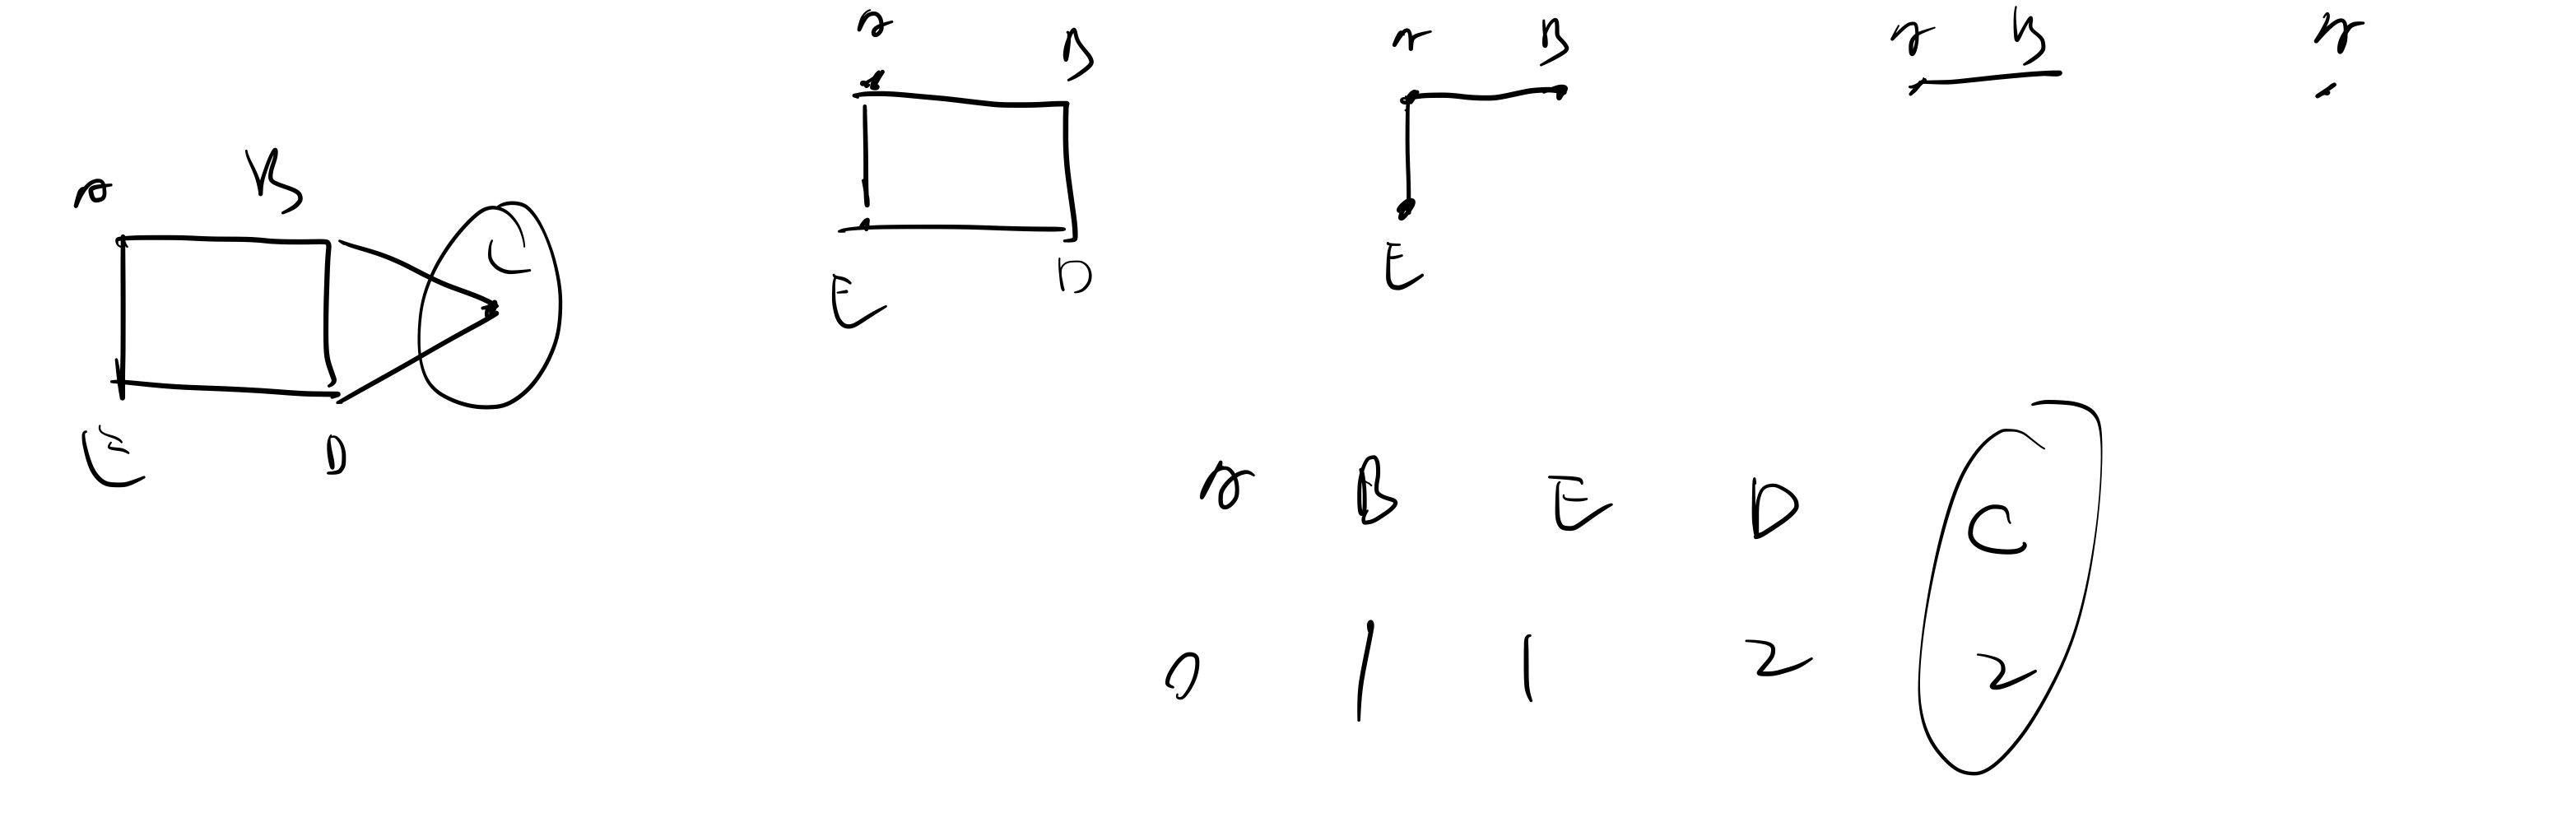 a B C
E D
a B
E D
a B
E
a B
a
a B E D C
0 1 1 2 2